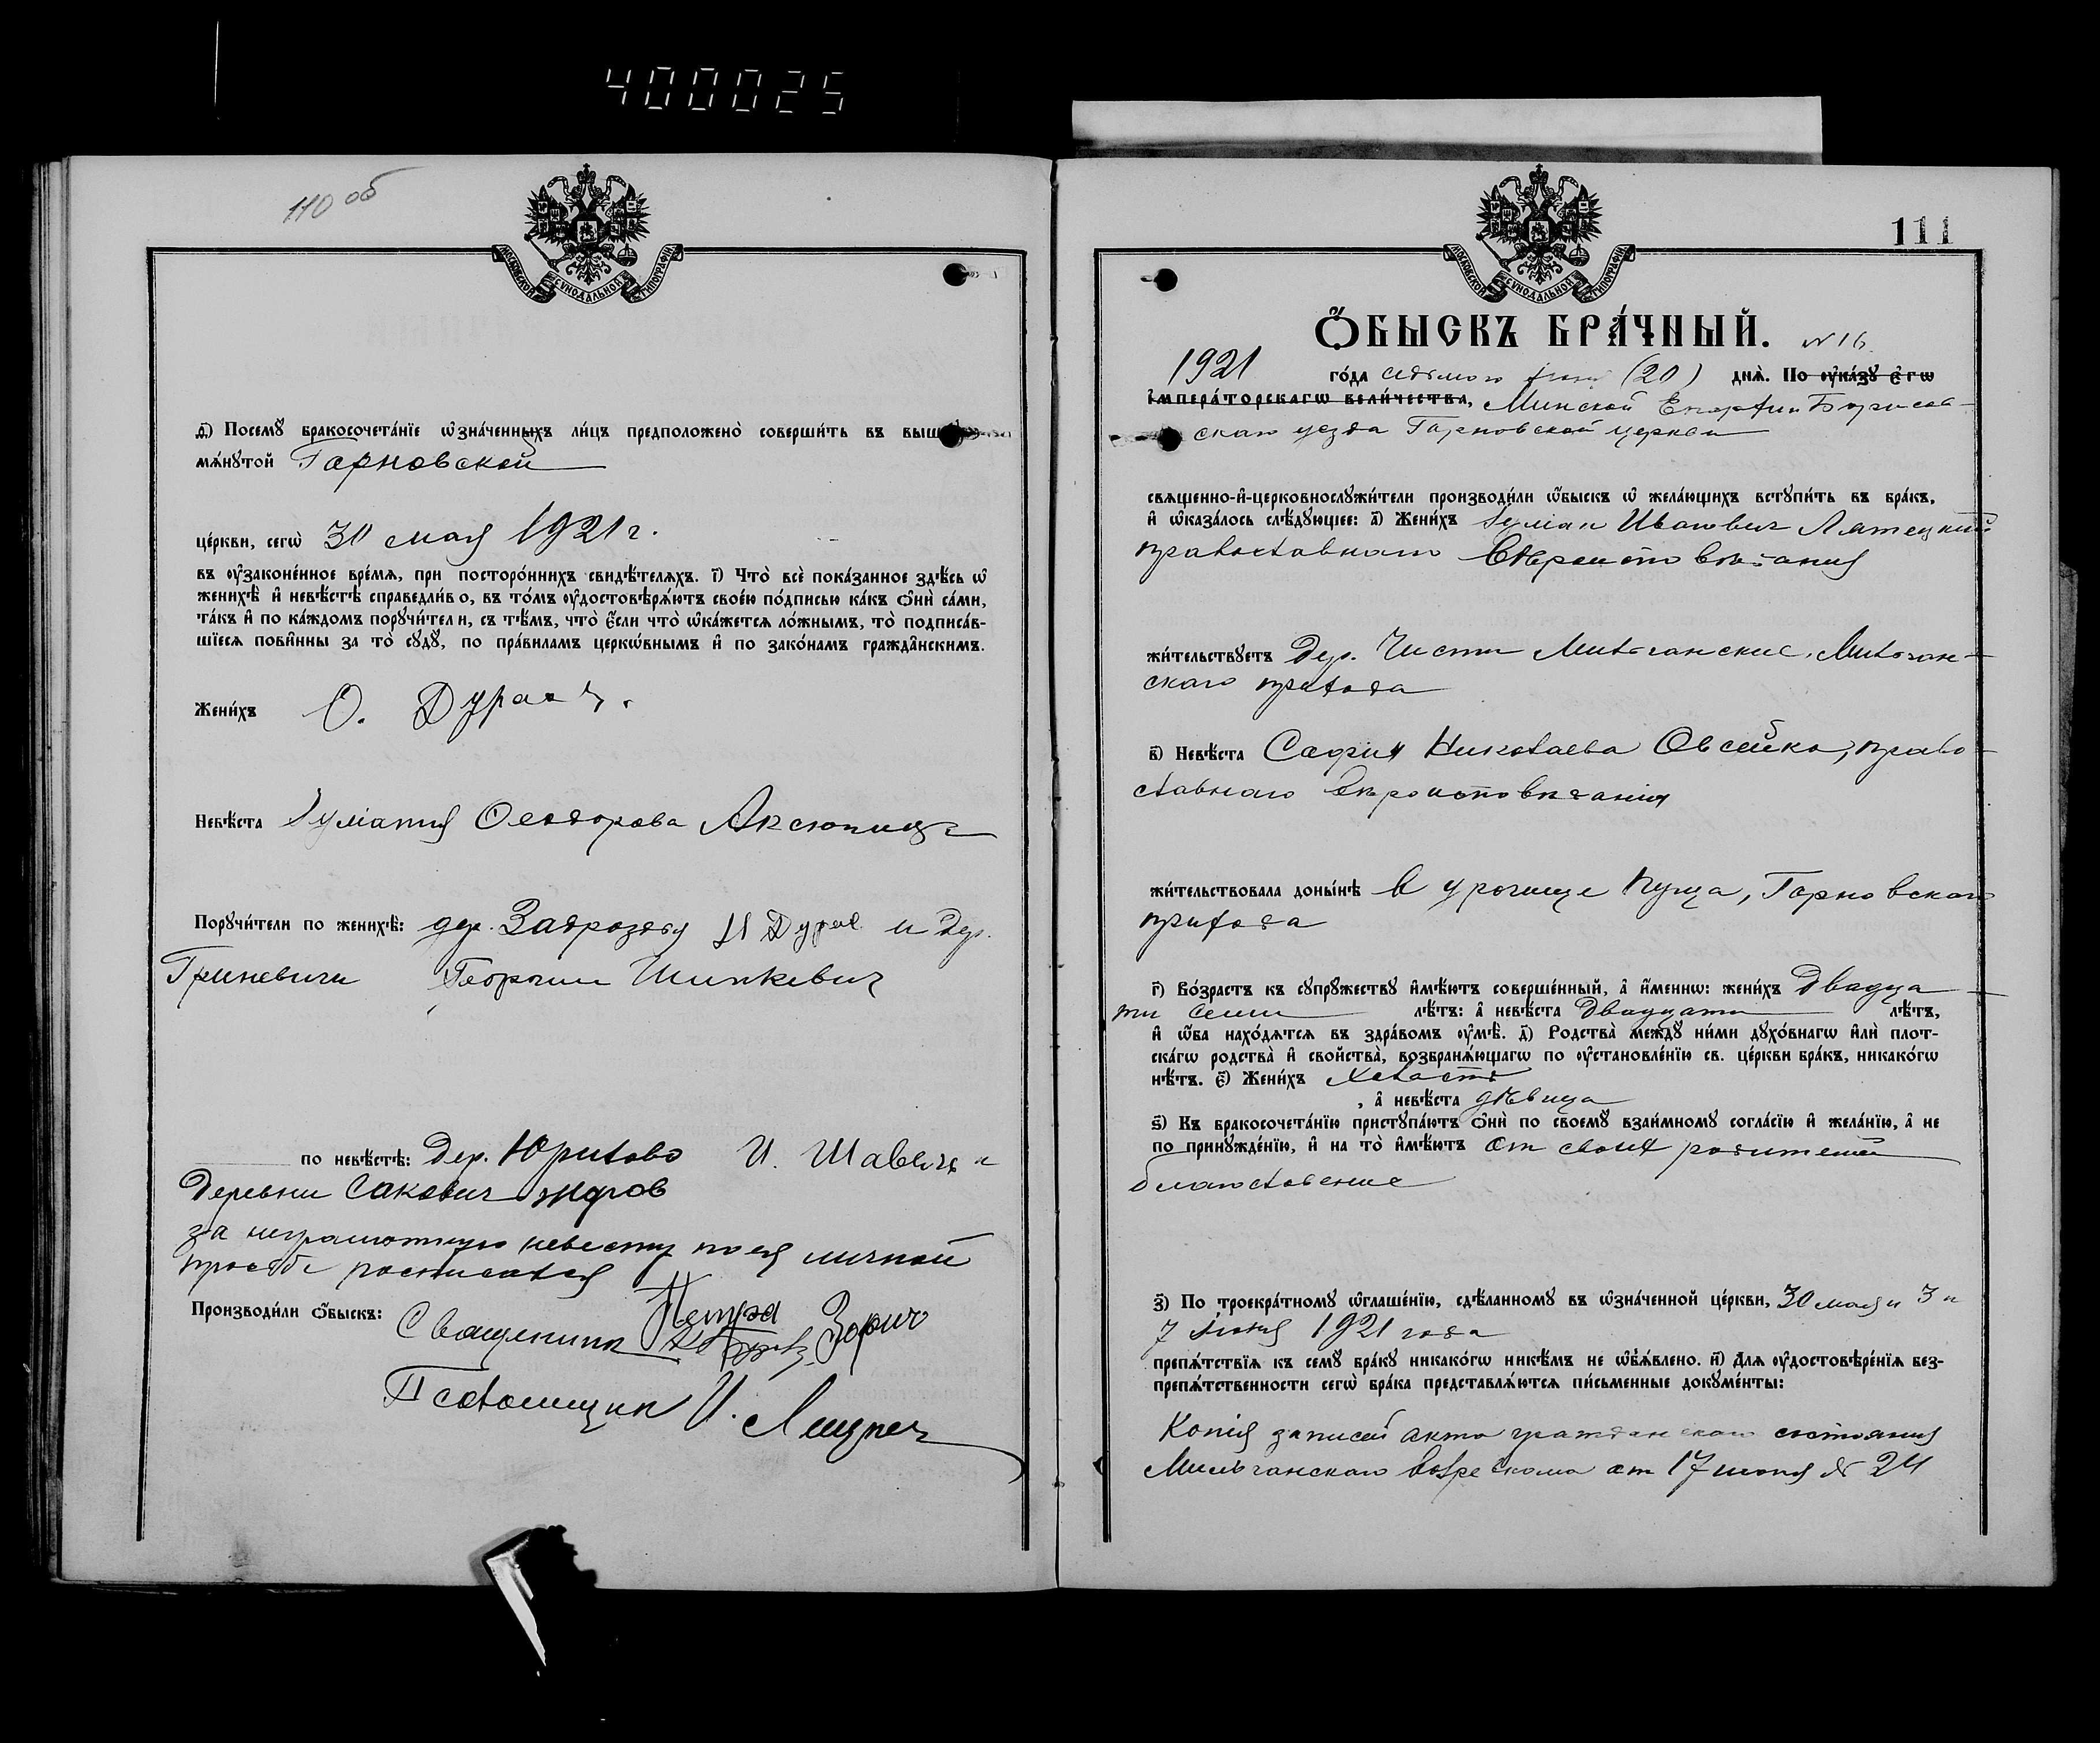 400025
110 об
МОСКОВСКОЙ СѴНОДАЛЬНОЙ ТИПОГРАФІИ
ѳ҃) Посемꙋ̀ бракосочета́нїе ѡ҆зна́ченныхъ ли́цъ предположено̀ соверши́ть въ выш
мѧ́нꙋтой Гарновской
це́ркви, сегѡ̀ 30 мая 1921 г.
въ ᲂу҆законе́нное вре́мѧ, при посторо́ннихъ свидѣ́телѧхъ. і҃) Что̀ всѐ пока́занное здѣ́сь ѡ҆
женихѣ̀ и҆ невѣ́стѣ справедли́во, въ то́мъ ᲂу҆достовѣрѧ́ютъ свое́ю по́дписью ка́къ ѻ҆нѝ са́ми,
та́къ и҆ по ка́ждомъ порꙋчи́тели, съ тѣ́мъ, что̀ є҆́сли что̀ ѡ҆ка́жетсѧ ло́жнымъ, то̀ подписа́в-
шїесѧ пови́нны за то̀ сꙋдꙋ̀, по пра́виламъ церко́внымъ и҆ по зако́намъ гражда́нскимъ.
Жени́хъ О.
Невѣ́ста Ѳеодорова
Порꙋчи́тели по женихѣ̀: дер. и дер.
Гриневичи Георгий Шипкевич
по невѣ́стѣ: дер. Юрилово И.
деревни Сакович
за неграмотную невесту по ея личной
просьбе росписался
Производи́ли ѻ҆́быскъ: Священник Петра Зорич
Псаломщик И.
111
МОСКОВСКОЙ СѴНОДАЛЬНОЙ ТИПОГРАФІИ
Ѻ҆́БЫСКЪ БРА́ЧНЫЙ. № 16
1921 го́да седьмого (20) днѧ̀. По ᲂу҆ка́зꙋ є҆гѡ̀
и҆мпера́торскагѡ вели́чества, Минской Епархии Борисов-
скаго уезда Гарновской церкви
свѧще́нно-и҆-церковнослꙋжи́тели производи́ли ѻ҆́быскъ ѡ҆ жела́ющихъ встꙋпи́ть въ бра́къ,
и҆ ѡ҆каза́лось слѣ́дꙋющее: а҃) Жени́хъ Иванович Лятецкий
православнаго вероисповедания
жи́тельствꙋетъ дер. Чисти Мильчанские, Мильчан-
скаго прихода
в҃) Невѣ́ста София Николаева Овсейко, право-
славнаго вероисповедания
жи́тельствовала доны́нѣ в урочище Пуща, Гарновскаго
прихода
г҃) Во́зрастъ къ сꙋпрꙋ́жествꙋ и҆мѣ́ютъ соверше́нный, а҆ и҆́меннѡ: жени́хъ двадца-
ти семи лѣ́тъ: а҆ невѣ́ста двадцати лѣ́тъ,
и҆ ѻ҆́ба нахо́дѧтсѧ въ здра́вомъ ᲂу҆мѣ̀. д҃) Родства̀ междꙋ̀ ни́ми дꙋхо́внагѡ и҆лѝ плот-
ска́гѡ родства̀ и҆ сво́йства̀, возбранѧ́ющагѡ по ᲂу҆становле́нїю св. це́ркви бра́къ, никако́гѡ
нѣ́тъ. є҃) Жени́хъ холостъ
, а҆ невѣ́ста дѣвица
ѕ҃) Къ бракосочета́нїю пристꙋпа́ютъ ѻ҆нѝ по своемꙋ̀ взаи́мномꙋ согла́сїю и҆ жела́нїю, а҆ не
по принꙋжде́нїю, и҆ на то̀ и҆мѣ́ютъ от своих родителей
благословение
з҃) По троекра́тномꙋ ѡ҆глаше́нїю, сдѣ́ланномꙋ въ ѡ҆зна́ченной це́ркви, 30 мая и 3 и
7 июня 1921 года
препѧ́тствїѧ къ семꙋ̀ бра́кꙋ никако́гѡ никѣ́мъ не ѡ҆б̾ѧ́влено. и҃) Длѧ ᲂу҆достовѣре́нїѧ без-
препѧ́тственности сегѡ̀ бра́ка представлѧ́ютсѧ пи́сьменные докꙋме́нты:
Копия записей акта гражданскаго состояния
Мильчанскаго от 17 июня № 24